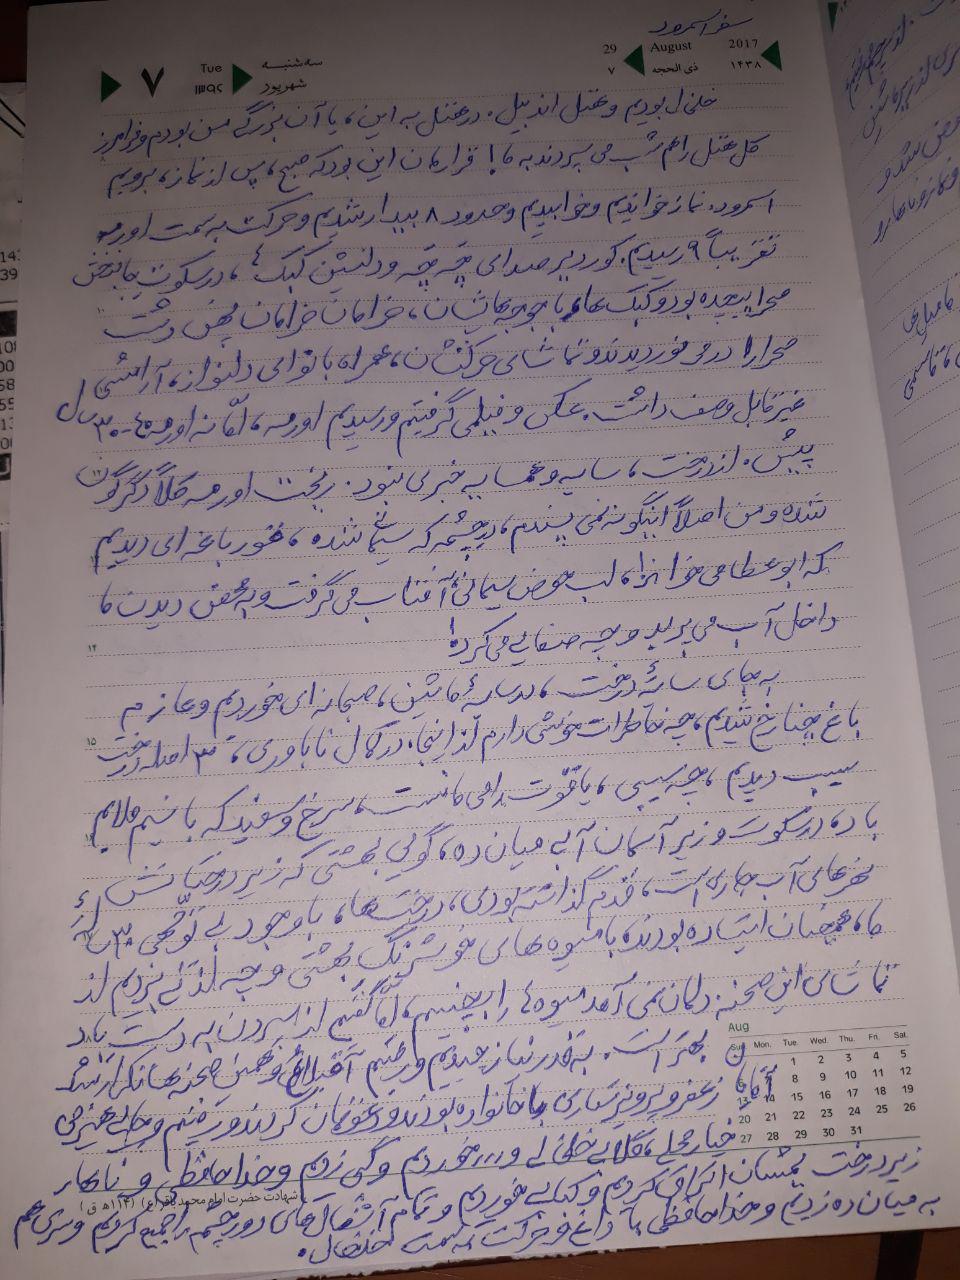 سفر اسمرود
29 August 2017
۷ ذی الحجه ۱۴۳۸
سه شنبه شهریور
Tue ۱۳۹۶
۷
خلخال بودیم و هتل اندبیل. در هتل به این، یا آن بزرگی من بودم و فرامرز
کل هتل را هم شب می سپردند به ما! قرارمان این بود که صبح، پس از نماز، برویم
اسمرود. نماز خواندیم و خوابیدیم و حدود ۸ بیدار شدیم و حرکت به سمت اورمه
تقریباً ۹ رسیدیم. صدای چَه چَهِ و دلنشین کبک ها، در سکوتِ
صحرا پیچیده بود و کبک ها، با جوجه هایشان، خرامان خرامان پهن دشت
صحرا را در می نوردیدند و تماشای حرکتشان، همراه با نوای دلنواز، آرامشی
غیر قابل وصف داشت. عکس و فیلمی گرفتیم و رسیدیم اورمه، امّا نه اورمه ۴۰-۳۰ سال
پیش. از درخت، سایه و همسایه خبری نبود. ریخت اورمه کلاً دگرگون
شده و من اصلاً اینگونه نمی پسندم، در چشمه که سیمانی شده، قورباغه ای دیدیم
که ابوعطا می خواند! لب حوض سیمانی آفتاب می گرفت و به محض دیدن ما
داخل آب می پرید و چه صفایی می کرد!
به جای سایهٔ درخت، در سایهٔ ماشین، صبحانه ای خوردیم و عازم
باغ چناریخ شدیم، چه خاطرات خوشی دارم از اینجا. در کمال ناباوری، ۳ اصله درخت
سیب دیدیم، چه سیبی، یاقوت را می مانست، سرخ و سفید که با نسیم ملایم
باد، در سکوت و زیر آسمان آبی میان ده، گویی بهشتی که زیر درختانش
نهرهای آب جاری است، قدم گذاشته بودی، درخت ها، با وجود بی توجّهی ۳۰ سالهٔ
ما، همچنان ایستاده بودند با میوه های خوشرنگ بهشتی و چه لذتی بردیم از
تماشای این صحنه. دلمان نمی آمد میوه ها را بچینیم، امّا گفتم از سپردن به دست باد
بهتر است. به قدر نیاز چیدیم و رفتیم آقداغ و همین صحنه ها تکرار شد
آقایان زعفر و پرویز ستاری با خانواده بودند و دعوتمان کردند و رفتیم و چایی، پنیر می
خیار محلی، گلابی خلخالی و... خوردیم و گپی زدیم و خداحافظی و ناهار
زیر درخت یمیشان اتراق کردیم و کبابی خوردیم و تمام آشغال های دور چشمه را جمع کردیم و سری هم
به میان ده زدیم و خداحافظی با داغ و حرکت به سمت خلخال.
Aug
Sun Mon. Tue. Wed. Thu. Fri. Sat.
1 2 3 4 5
8 9 10 11 12
13 14 15 16 17 18 19
20 21 22 23 24 25 26
27 28 29 30 31
شهادت حضرت امام محمد باقر (ع) (۱۱۴ ه ق)